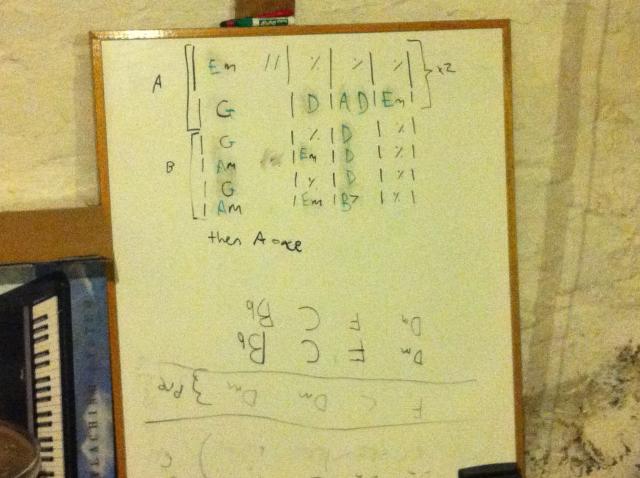 A Em // | % | % | % | } x2
| G | D | A D | Em |
| G | % | D | % |
B | Am | Em | D | % |
| G | % | D | % |
| Am | Em | B7 | % |
then A once
Dm F C Bb
Dm F C Bb
F C Dm Dm } Pre
TEACHING